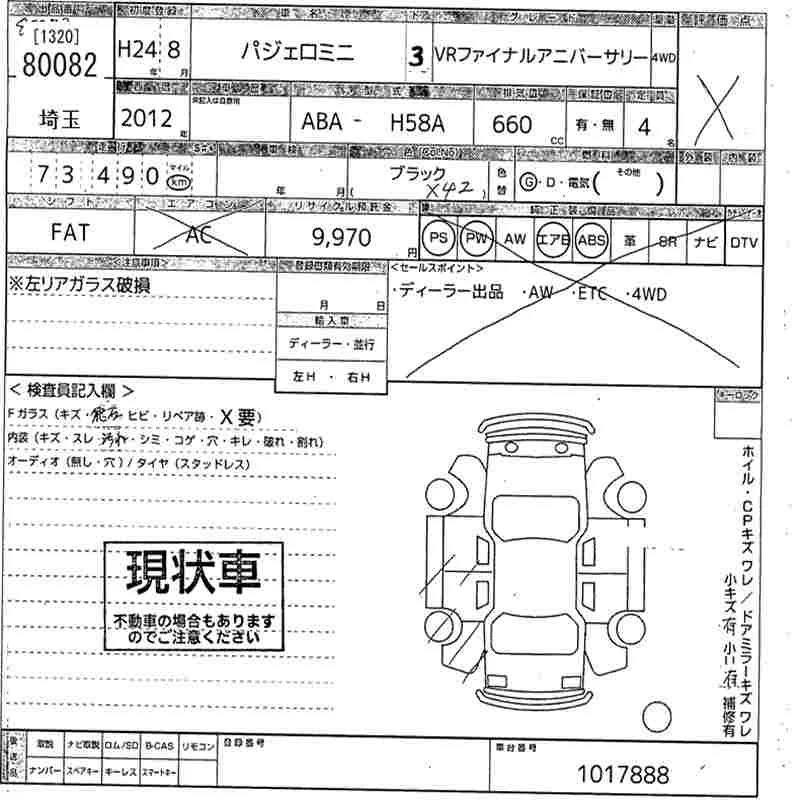 初度登録 車名 ドア グレード
[1320]
80082
H24 年 8 月
パジェロミニ
3
VRファイナルアニバーサリー
4WD
X
埼玉
2012 年
型式 排気量 定員
ABA - H58A
660 CC
有・無
4 名
外装 内装
73490 マイル km
年 月(
ブラック
X42 )
色替
G・D・電気( その他 )
シフト エアコン リサイクル預託金
FAT
AC
9,970 円
PS PW AW エアB ABS 革 SR ナビ DTV
<注意事項> 登録書類有効期限 <セールスポイント>
※左リアガラス破損
月 日
・ディーラー出品 ・AW ・ETC ・4WD
輸入車
ディーラー・並行
左H ・ 右H
<検査員記入欄>
キーロック
Fガラス(キズ・ ヒビ・リペア跡・X要)
内装(キズ・スレ 汚れ・シミ・コゲ・穴・キレ・破れ・割れ)
オーディオ(無し・穴)/タイヤ(スタッドレス)
ホイル・CPキズ ワレ/ドアミラーキズ ワレ
小キズ有 小凹有 補修有
現状車
不動車の場合もあります
のでご注意ください
後送品
取説 ナビ取説 ロム/SD B-CAS リモコン
登録番号
車台番号
ナンバー スペアキー キーレス スマートキー
1017888